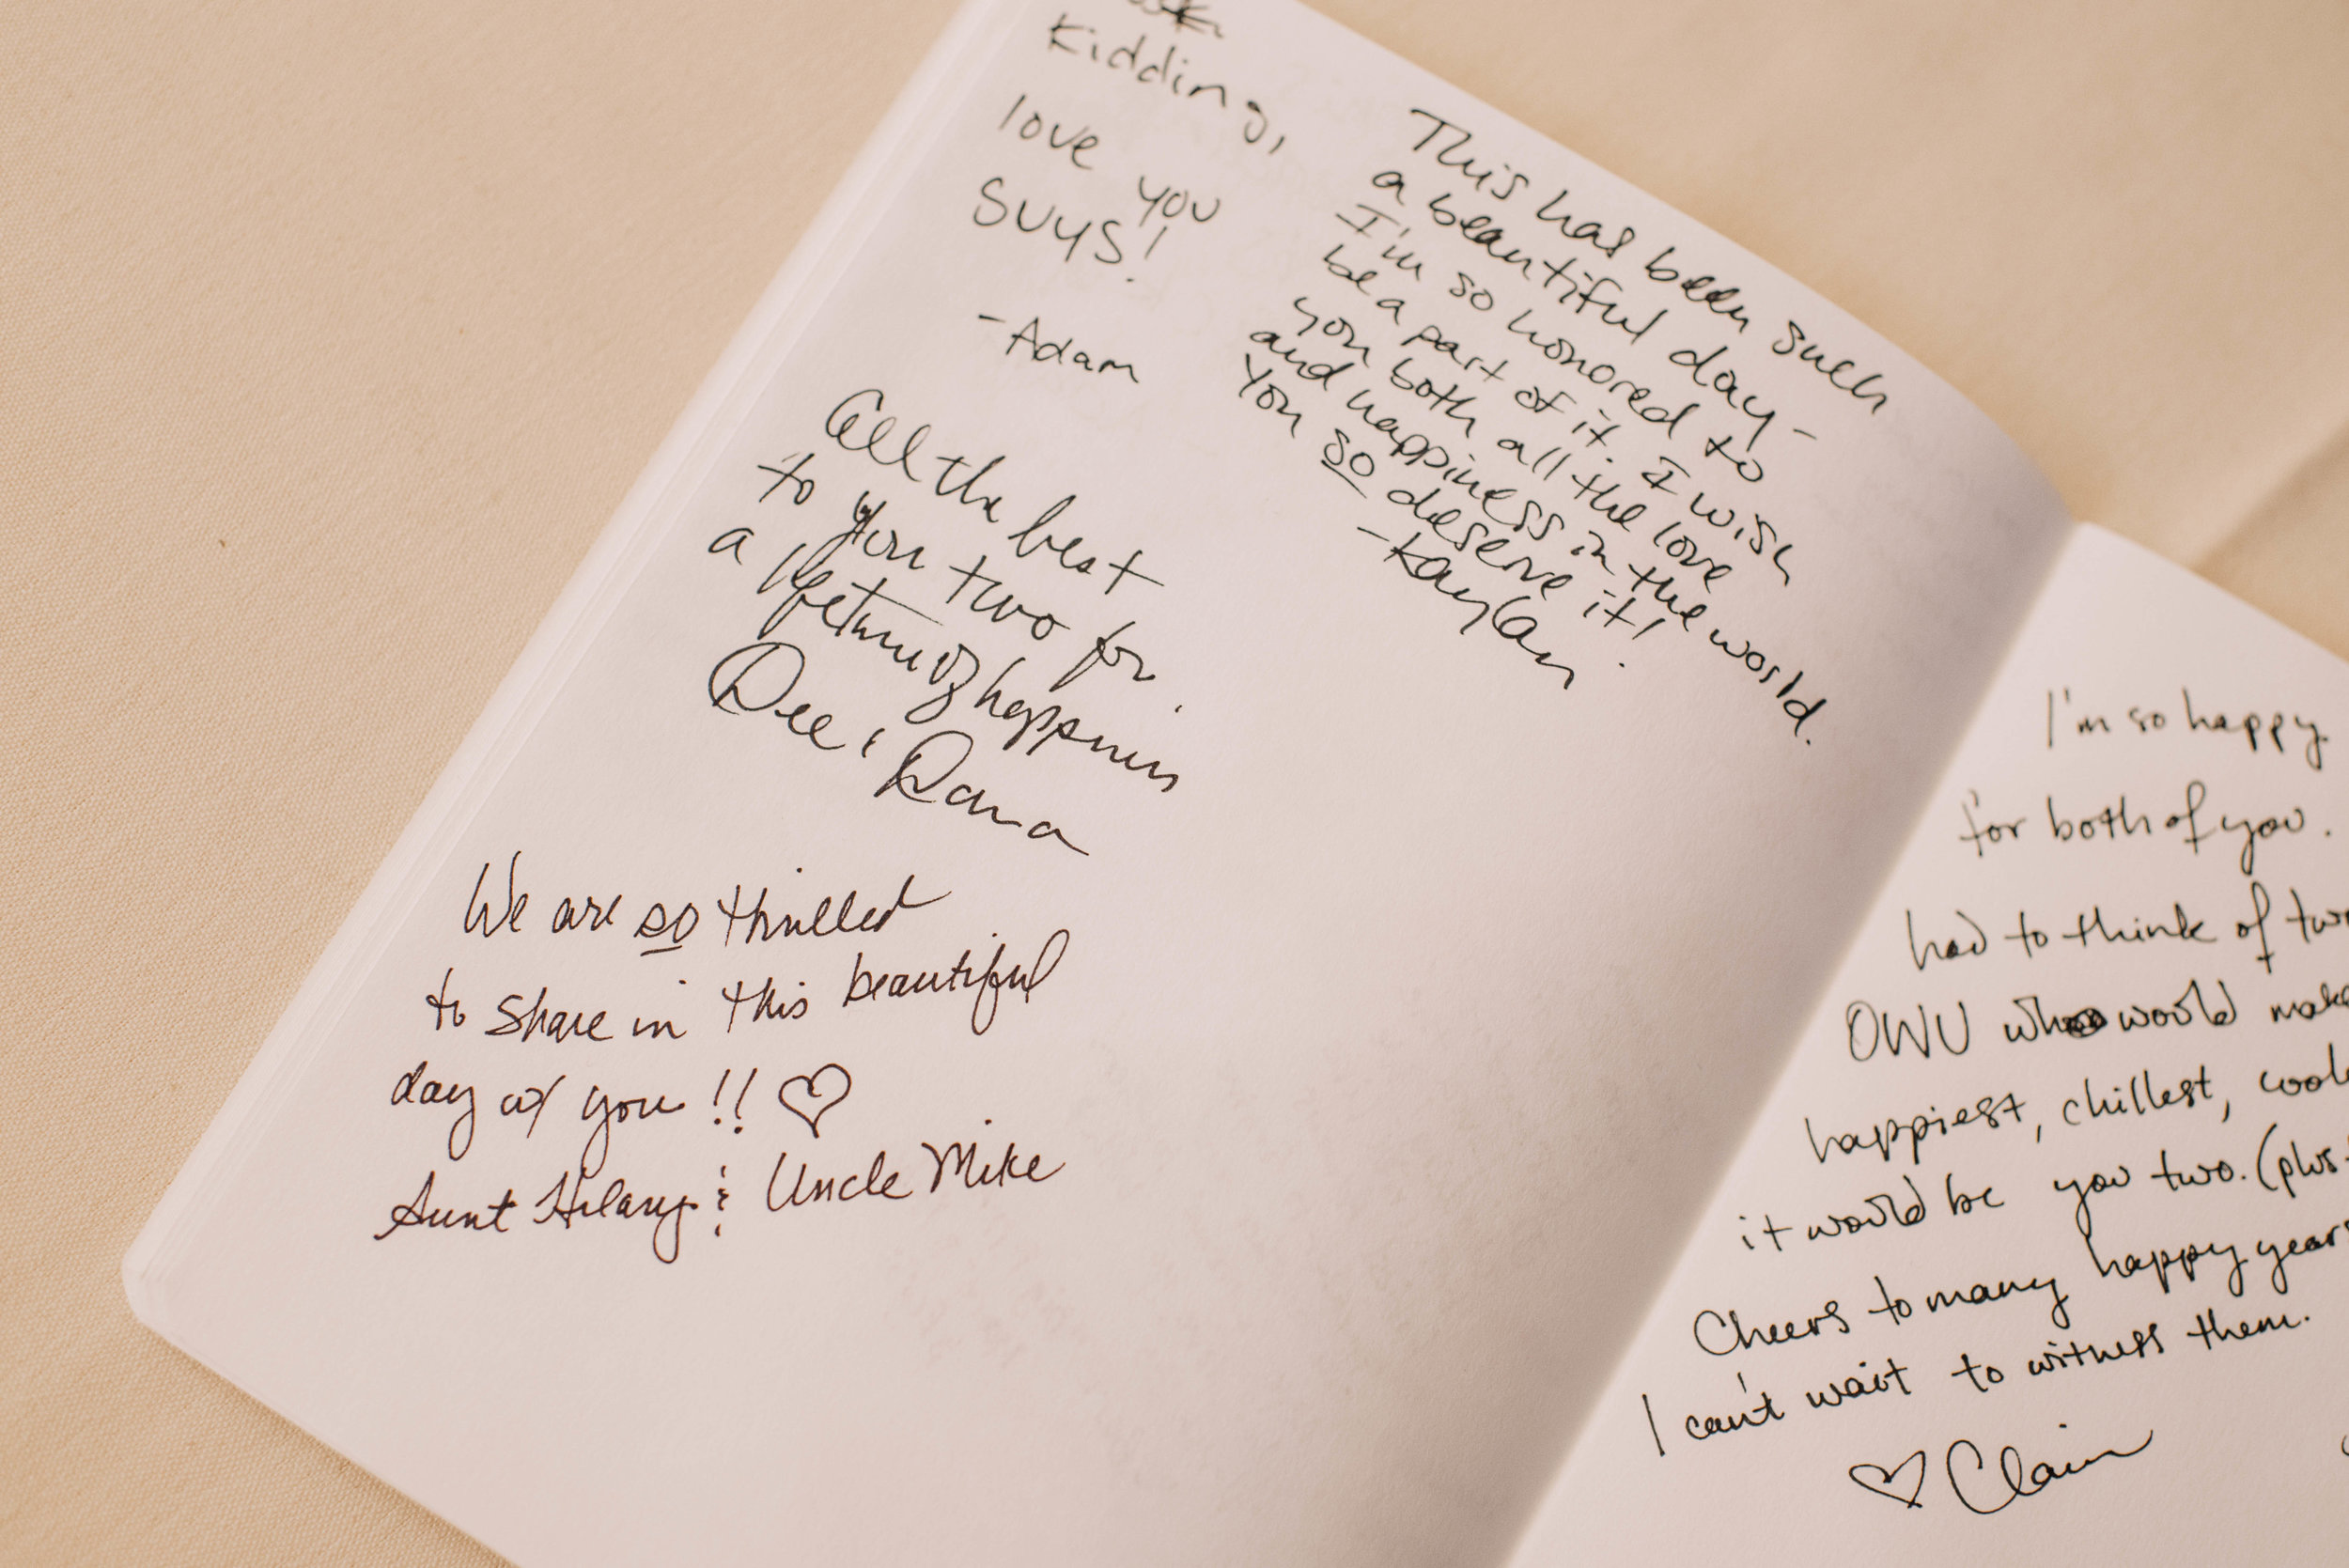 Kidding,
love you
guys!
-Adam
This has been such
a beautiful day-
I'm so honored to
be a part of it. I wish
you both all the love
and happiness in the world.
You so deserve it!
-Kaylan
All the best
to you two for
a lifetime of happiness
Dee & Dana
We are so thrilled
to share in this beautiful
day w/ you!! ♡
Aunt Hilary & Uncle Mike
I'm so happy
for both of you.
had to think of
OWU who would make
happiest, chillest,
it would be you two. (plus
Cheers to many happy years
I can't wait to witness them.
♡ Claire